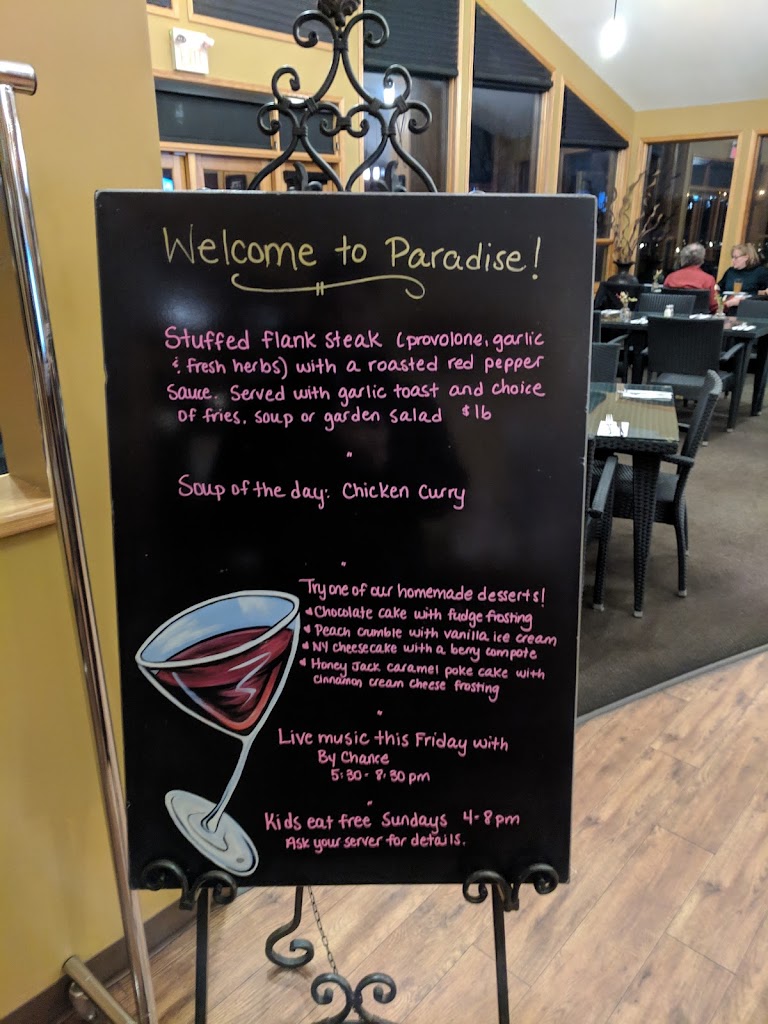 Welcome to Paradise!
Stuffed flank steak (provolone, garlic
& fresh herbs) with a roasted red pepper
sauce. Served with garlic toast and choice
of fries, soup or garden salad $16
Soup of the day: Chicken Curry
Try one of our homemade desserts!
Chocolate cake with fudge frosting
Peach crumble with vanilla ice cream
NY cheesecake with a berry compote
Honey Jack caramel poke cake with
cinnamon cream cheese frosting
Live music this Friday with
By Chance
5:30 - 8:30 pm
Kids eat free Sundays 4-8pm
Ask your server for details.